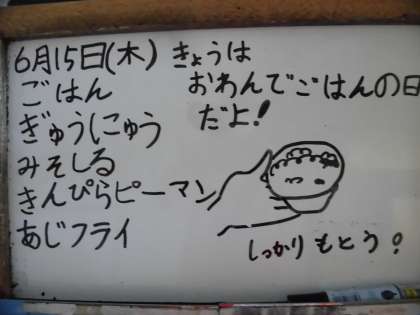 6月15日(木) きょうは
おわんでごはんの日
だよ!
ごはん
ぎゅうにゅう
みそしる
きんぴらピーマン
あじフライ
しっかりもとう!